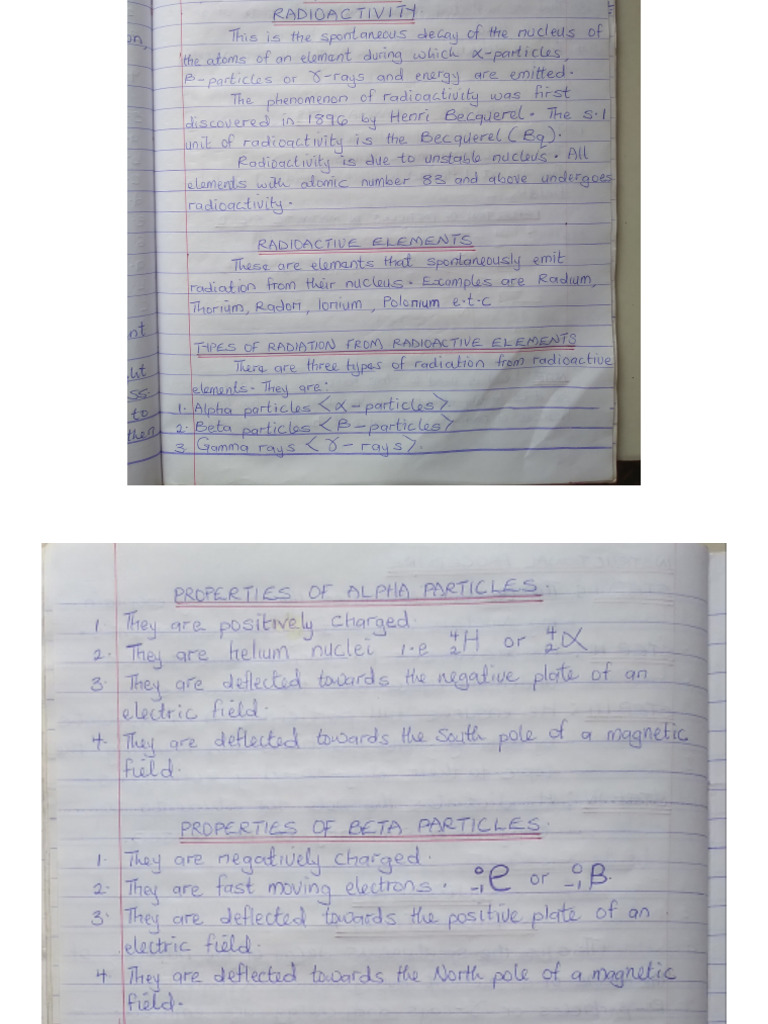 RADIOACTIVITY
This is the spontaneous decay of the nucleus of
the atoms of an element during which α-particles,
β-particles or γ-rays and energy are emitted.
The phenomenon of radioactivity was first
discovered in 1896 by Henri Becquerel. The S.I
unit of radioactivity is the Becquerel (Bq).
Radioactivity is due to unstable nucleus. All
elements with atomic number 83 and above undergoes
radioactivity.
RADIOACTIVE ELEMENTS
These are elements that spontaneously emit
radiation from their nucleus. Examples are Radium,
Thorium, Radon, Ionium, Polonium e.t.c
TYPES OF RADIATION FROM RADIOACTIVE ELEMENTS
There are three types of radiation from radioactive
elements. They are:
1. Alpha particles <α-particles>
2. Beta particles <β-particles>
3. Gamma rays <γ-rays>.
to
then
PROPERTIES OF ALPHA PARTICLES.
1 They are positively charged.
2. They are helium nuclei i.e ⁴₂H or ⁴₂α
3. They are deflected towards the negative plate of an
electric field.
4. They are deflected towards the South pole of a magnetic
field.
PROPERTIES OF BETA PARTICLES.
1. They are negatively charged.
2. They are fast moving electrons. ⁰₋₁e or ⁰₋₁β.
3. They are deflected towards the positive plate of an
electric field.
4. They are deflected towards the North pole of a magnetic
field.